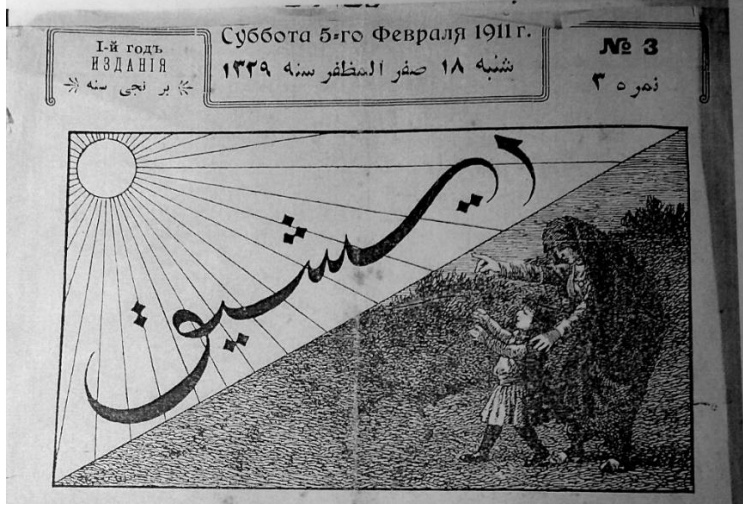 I-й годъ
ИЗДАНІЯ
بر نجی سنه
Суббота 5-го Февраля 1911 г.
شنبه ١٨ صفر المظفر سنه ١٣٢٩
№ 3
نمره ٣
ایشیق